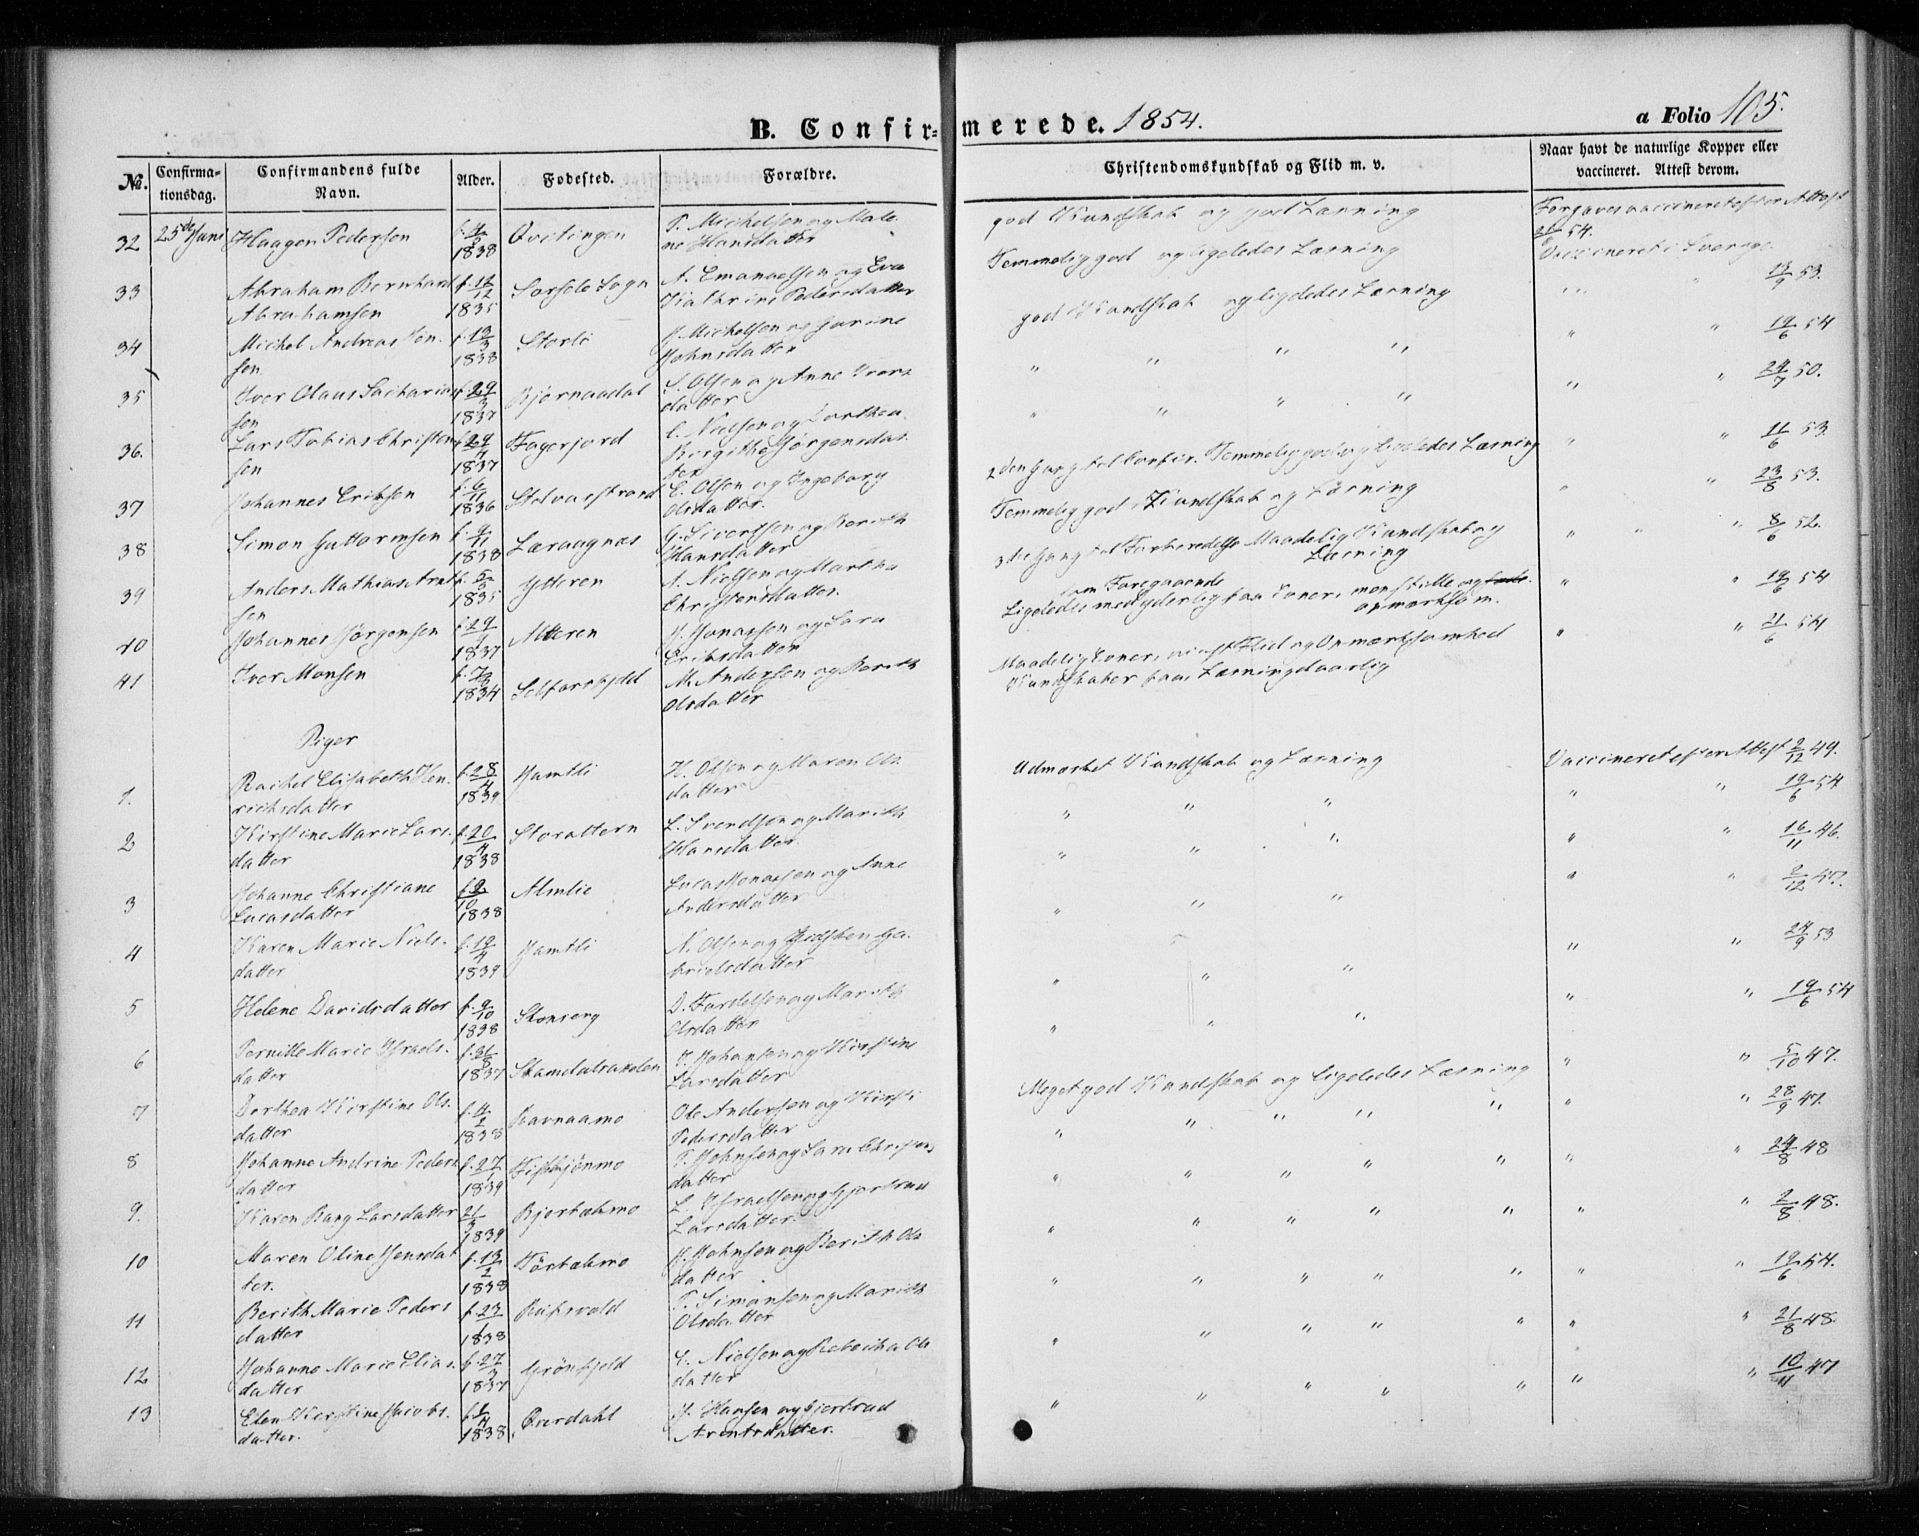 B. Confirmerede. 1854.
a Folio 105.
No. Confirmationsdag. Confirmandens fulde Navn. Alder. Fodested. Forældre. Christendomskundskab og Flid m. v. Naar havt de naturlige Kopper eller vaccineret. Attest derom.
32 25de Juni Haagen Pedersen 1838 Qvitingen P. Michelsen og Malene Hansdatter god Kundskab og god Læsning Forgjæves vaccineret efter Attest 54.
33 Abraham Bernhard Abrahamsen f. 12/12 1835 Sorsele Sogn A. Emanuelsen og Eva Kathrine Pedersdatter Temmelig god og ligeledes Læsning Vaccineret i Sverige 13/9 53.
34 Michel Andreas Jonsen f. 13/3 1838 Storli J. Michelsen og Gurine Johnsdatter god Kundskab og ligeledes Læsning " " 19/6 54
35 Iver Olaus Sachariassen f. 29/3 1837 Bjørnaadal S. Olsen og Anne Iversdatter " " " " " " 24/7 50.
36. Lars Tobias Christensen f. 29/4 1837 Fagerjord C. Nielsen og Dorthea Birgithe Jørgensdatter " " " " " " 11/6 53.
37 Johannes Erichsen f. 6/11 1836 Selvasstrand E. Olsen og Ingeborg Olsdatter. 2den Gang til Confir. Temmelig god og ligeledes Læsning " " 23/8 53.
38 Simon Guttormsen 1838 G. Sivertsen og Berith Hansdatter Temmelig god i Kundskab og Læsning " " " 8/6 52.
39 Anders Mathias Antsen f. 5/3 1835 Ytteren A. Nielsen og Martha Christensdatter. 3de Gang til Forberedelse Maadelig Kundskab og Læsning " " 19/6 54
40 Johannes Jørgensen f. 29/9 1837 Alteren J. Jonassen og Sara Erichsdatter Ligeledes som Foregaaende med yderlig faa Evner, men stille og opmærksom. " " 21/6 54
41 Iver Monsen 1834 Selforsbygdet M. Andersen og Berith Olsdatter Maadelig Evner, ringe Flid og Opmærksomhed Kundskaber faa, Læsning daarlig
Piger
1. Rachel Elisabeth Henrichsdatter f. 28/4 1839 Jamtli H. Olsen og Maren Olsdatter Udmærket Kundskab og Læsning Vaccineret efter Attest 2/12 49.
2 Kirstine Marie Larsdatter f. 20/4 1838 Storalteren L. Svendsen og Marith Hansdatter. " " " " " 19/6 54
3 Johanne Christiane Lucasdatter f. 2/10 1838 Almlie Lucas Jonassen og Anne Andersdatter " " " " " 16/11 46.
4 Karen Marie Nielsdatter f. 19/4 1839 Jamtli N. Olsen og Gabrielsdatter " " " " " 2/12 47.
5 Helene Davidsdatter f. 9/10 1838 Skonseng D. Fordelsen og Marith Olsdatter " " " " " 24/9 53
6 Pernille Marie Israelsdatter 1837 I. Johansen og Kirstine Larsdatter " " " " " 19/6 54
7 Dorthea Kirstine Olsdatter f. 4/2 1838 Ravnaamo Ole Andersen og Kirsti Pedersdatter Meget god Kundskab og ligeledes Læsning " " 5/10 47.
8 Johanne Andrine Pedersdatter f. 27/1 1839 Fisktjønmo P. Johnsen og Sara Christensdatter " " " " " " " 28/9 47.
9. Karen Bang Larsdatter 21/3 1839 Bjerkaamo L. Israelsen og Gjertrud Larsdatter. " " " " " " " 24/8 48
10 Maren Oline Jensdatter. f. 13/2 1838 Tørbækmo J. Johnsen og Berith Olsdatter " " " " " " " 2/8 48.
11 Berith Marie Pedersdatter f. 23/1 1838 P. Simonsen og Marith Olsdatter " " " " " " " 19/6 54.
12 Johanne Marie Eliasdatter f. 27/3 1837 Grønfjeld E. Nielsen og Rebecka Olsdatter " " " " " " " 21/8 48.
13 Elen Kirstine Jacobsdatter. 1838 Överdahl J. Hansen og Gjertrud Arentsdatter. " " " " " " " 10/11 47